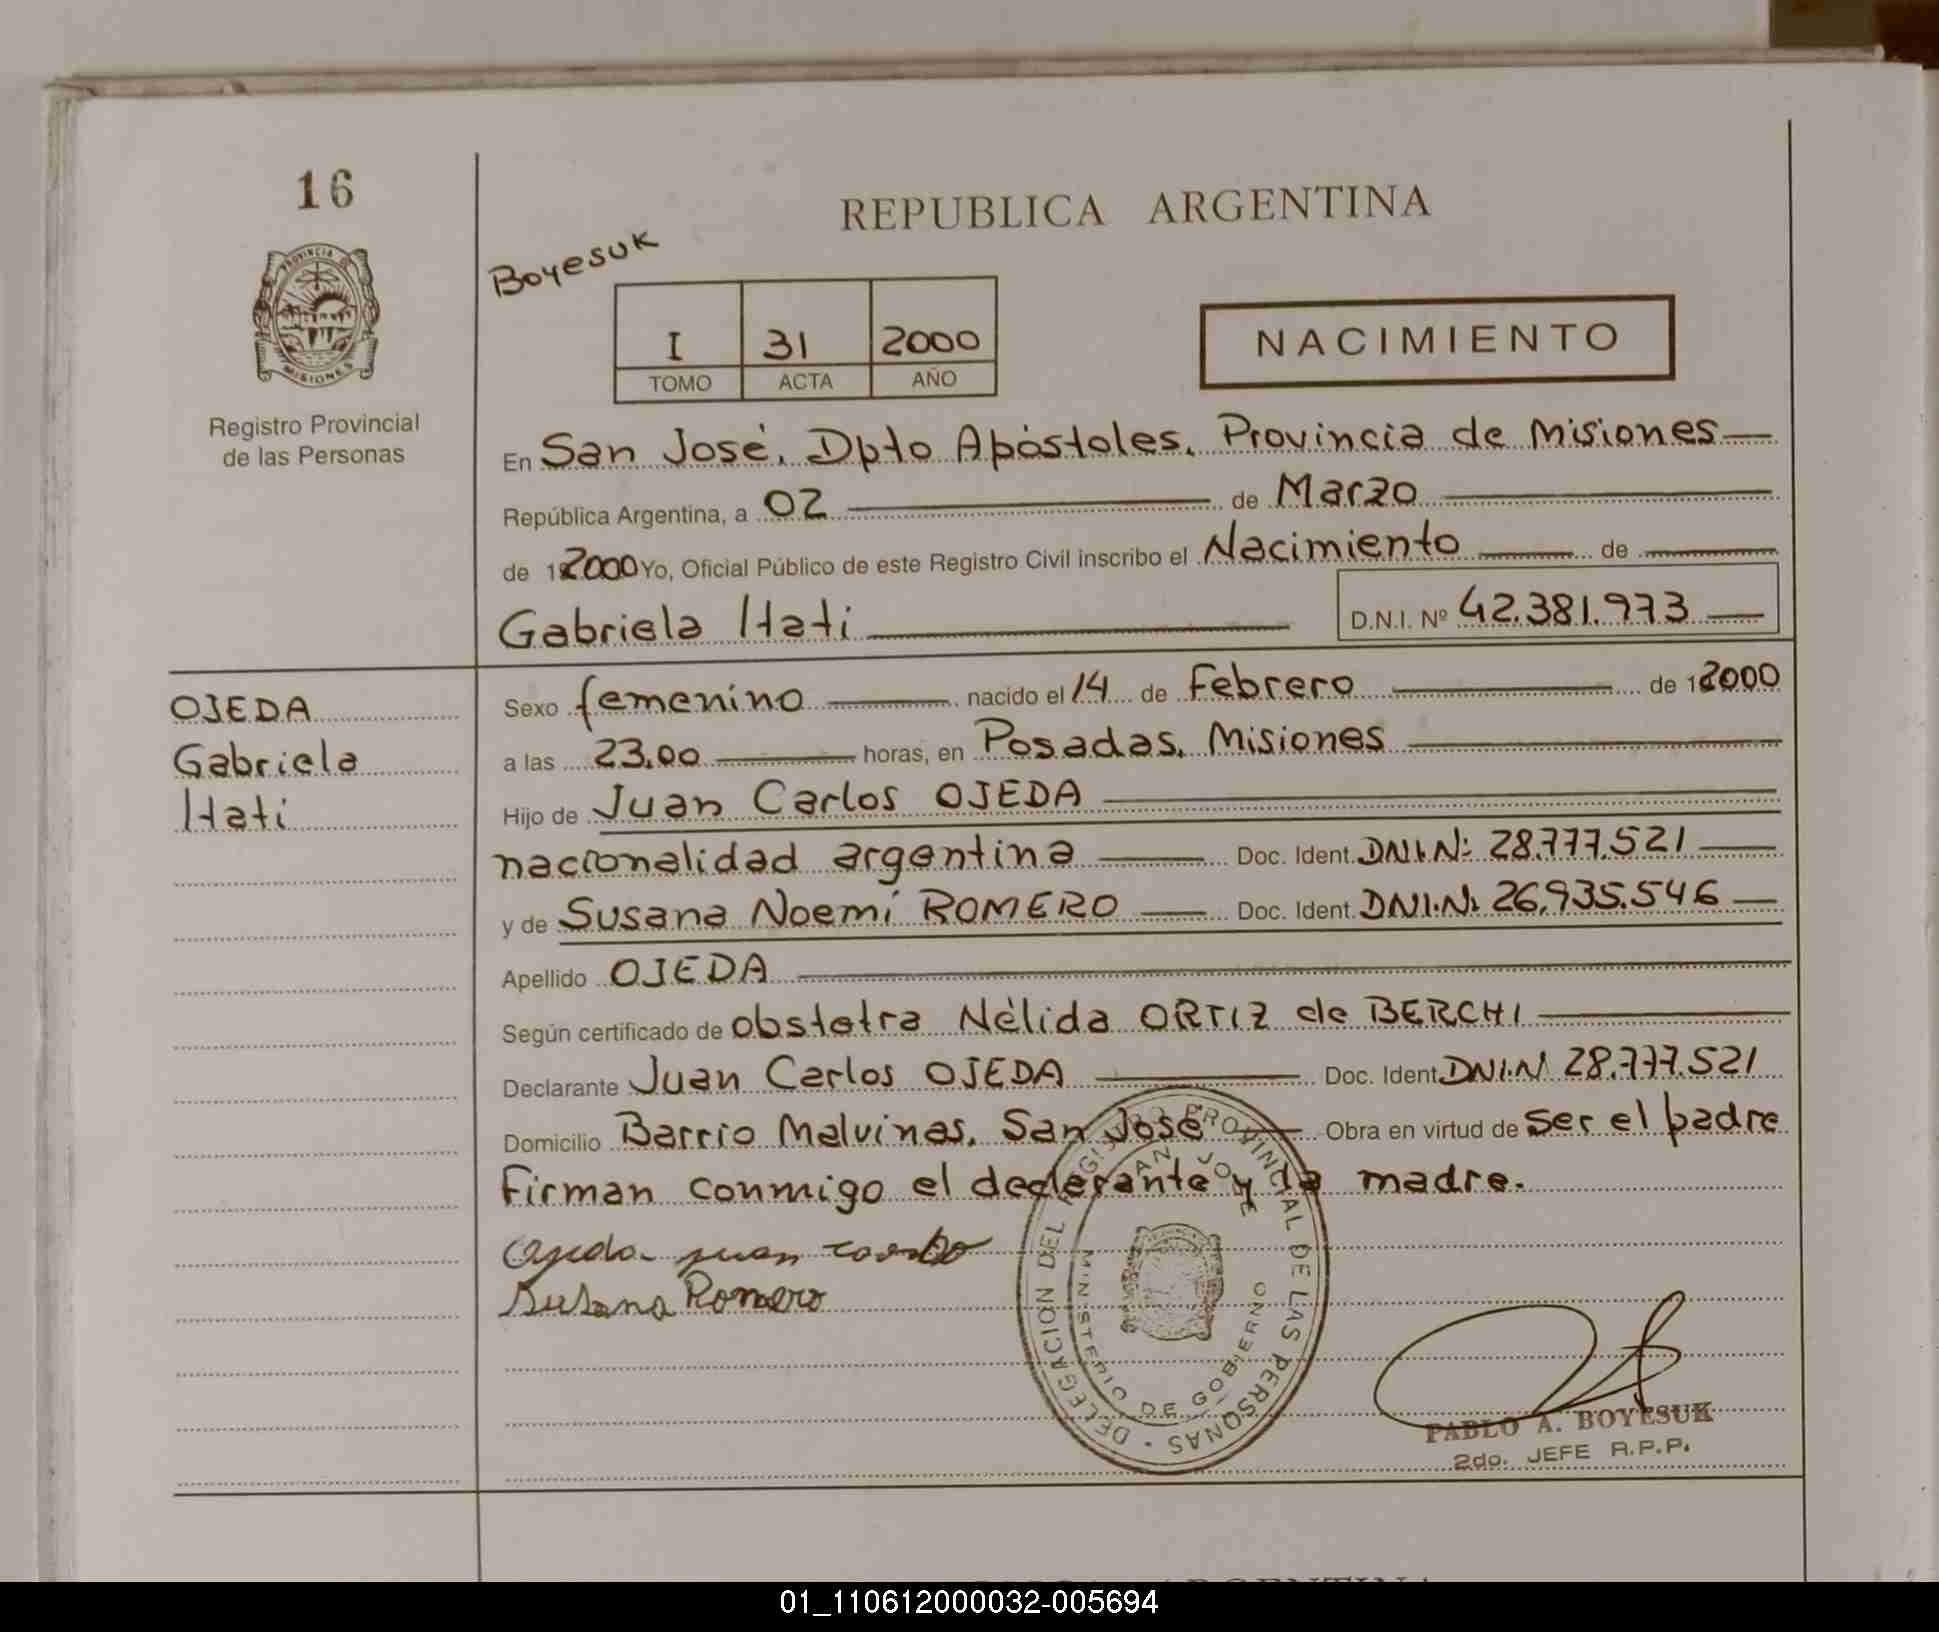 16
REPUBLICA ARGENTINA
Boyesuk
PROVINCIA DE
MISIONES
Registro Provincial
de las Personas
I 31 2000
TOMO ACTA AÑO
NACIMIENTO
En San José, Dpto Apóstoles, Provincia de Misiones
República Argentina, a 02 de Marzo
de 12000 Yo, Oficial Público de este Registro Civil inscribo el Nacimiento de
Gabriela Itati D.N.I. Nº 42.381.973
OJEDA
Gabriela
Itati
Sexo femenino nacido el 14 de Febrero de 12000
a las 23,00 horas, en Posadas, Misiones
Hijo de Juan Carlos OJEDA
nacionalidad argentina Doc. Ident. DNI.Nº 28.777.521
y de Susana Noemí ROMERO Doc. Ident. DNI.Nº 26.935.546
Apellido OJEDA
Según certificado de obstetra Nélida ORTIZ de BERCHI
Declarante Juan Carlos OJEDA Doc. Ident. DNI.N 28.777.521
Domicilio Barrio Malvinas, San José Obra en virtud de ser el padre
Firman conmigo el declarante y la madre.
Ojeda juan carlo
Susana Romero
DELEGACION DEL REGISTRO PROVINCIAL DE LAS PERSONAS
SAN JOSE
MINISTERIO DE GOBIERNO
PABLO A. BOYESUK
2do. JEFE R.P.P.
01_110612000032-005694